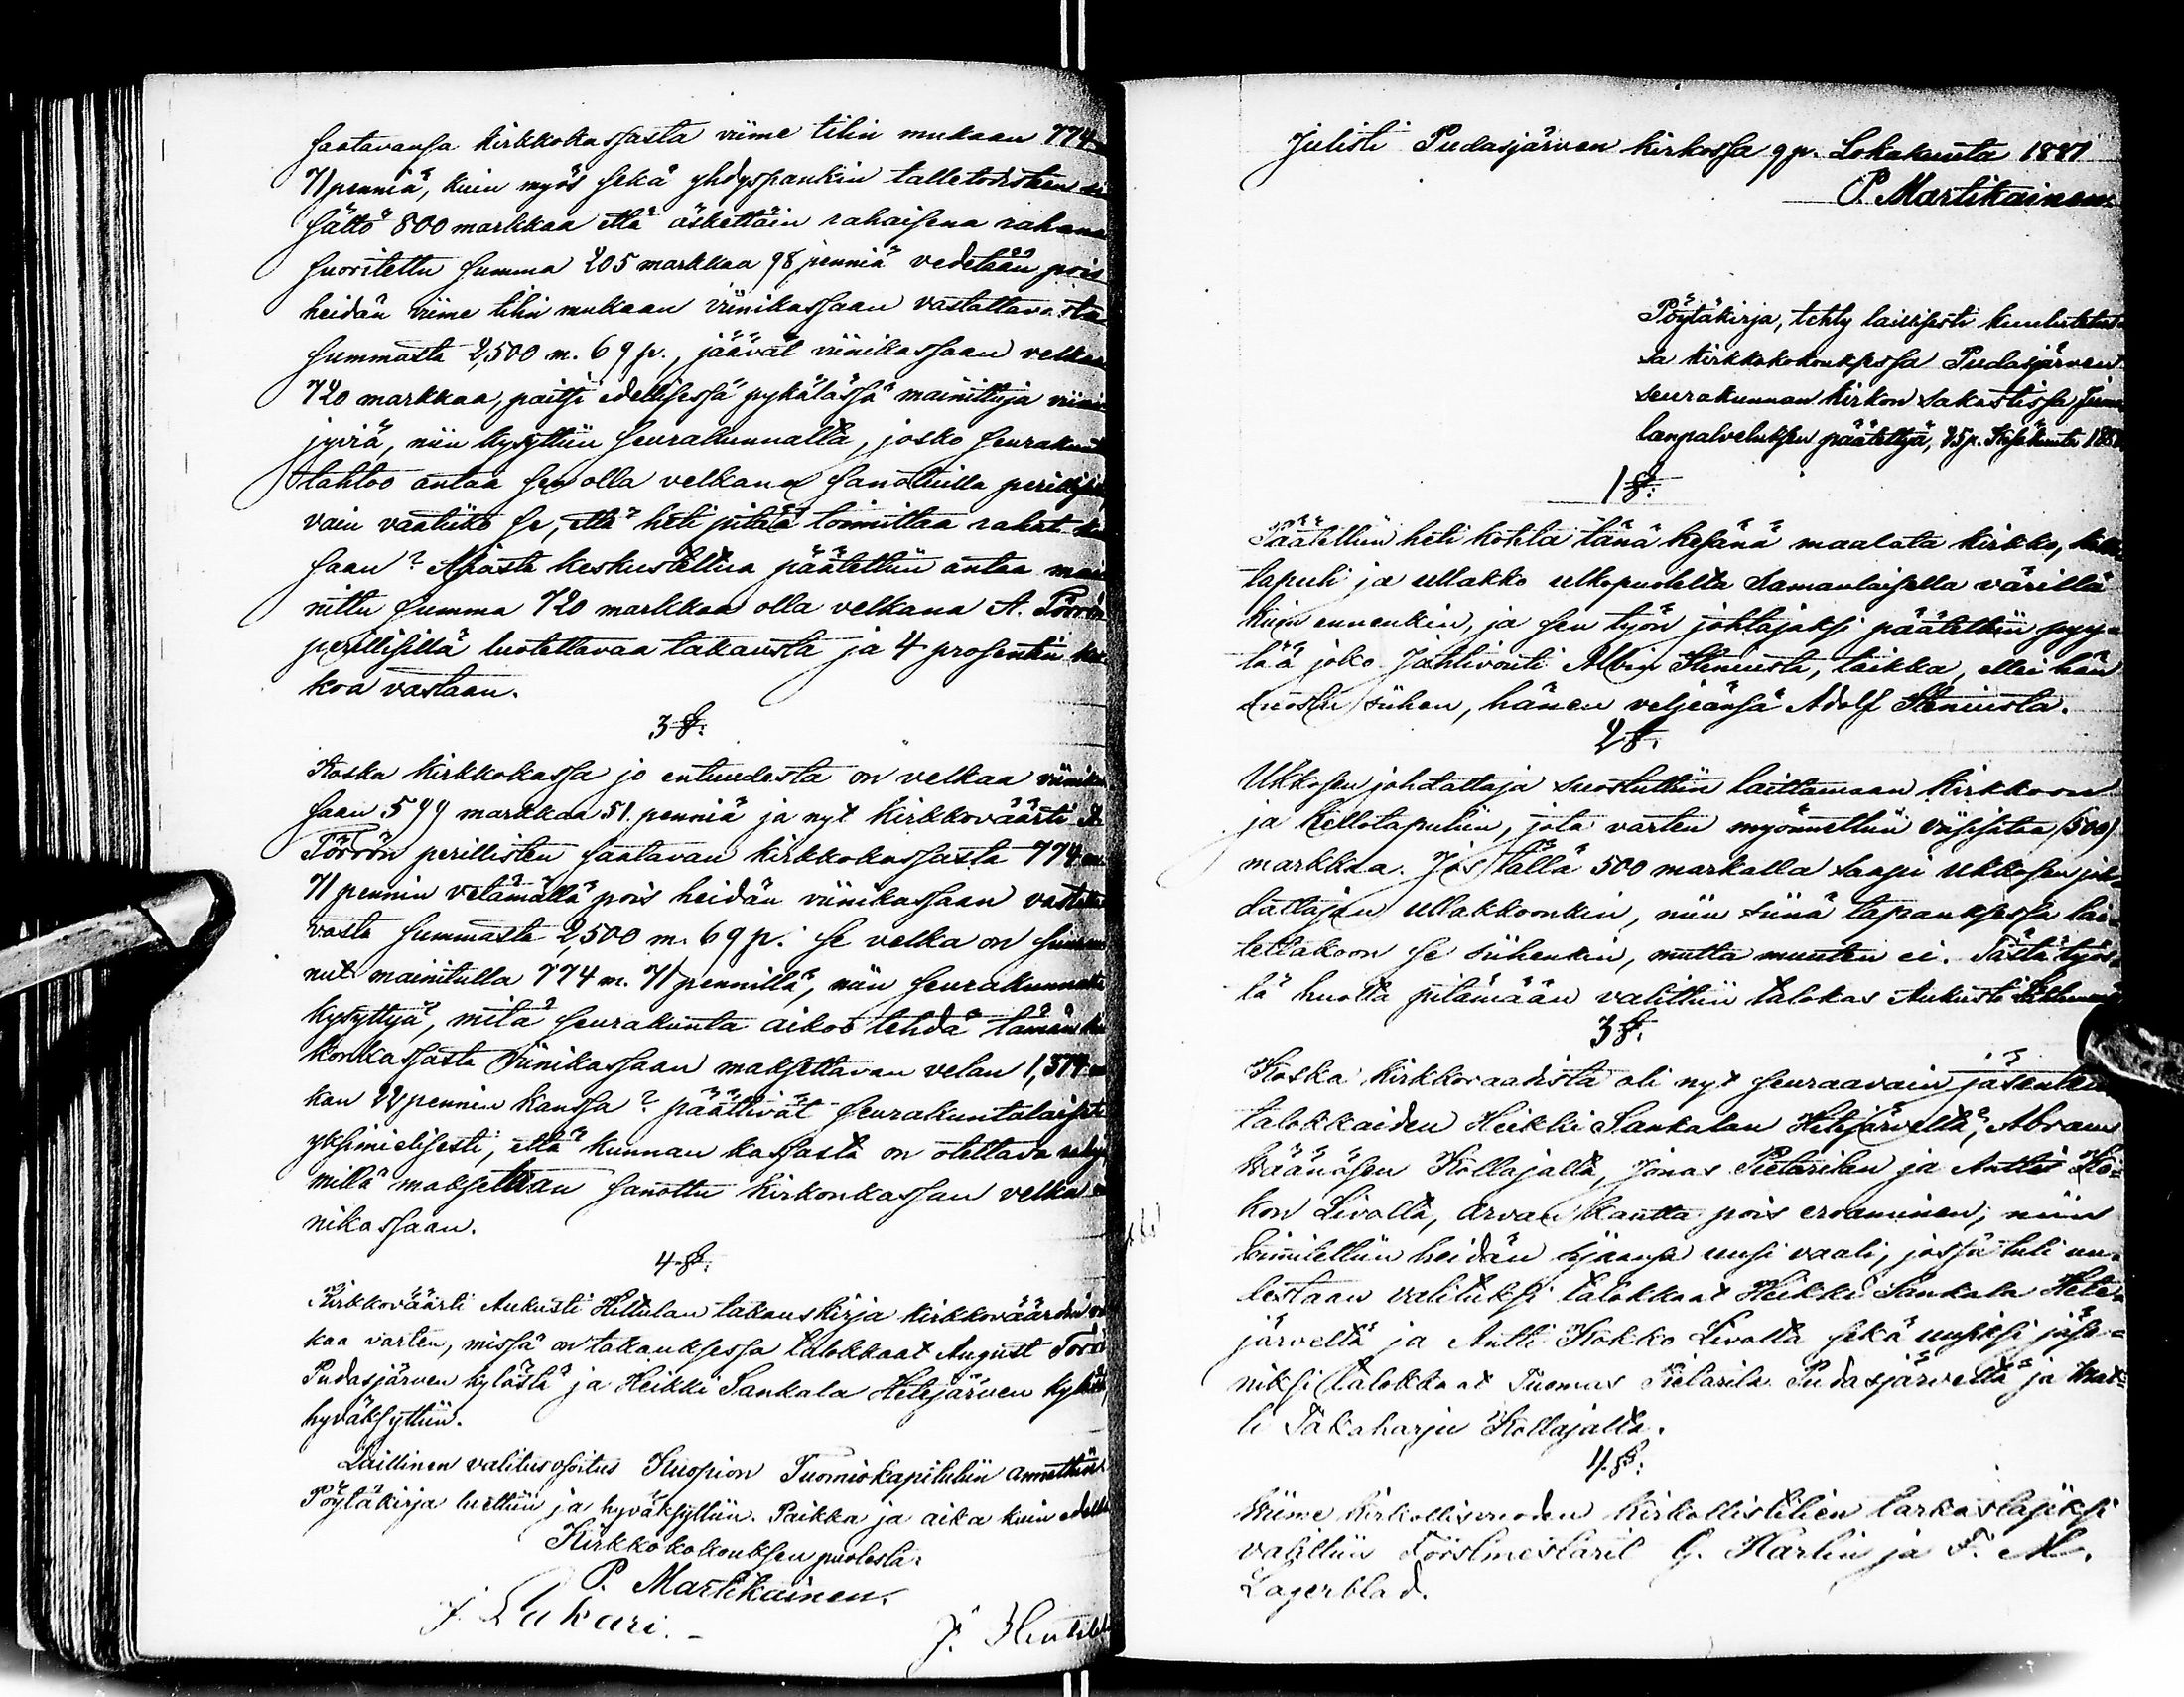 saatavansa kirkkokassasta viime tilin mukaan 774
71 penniä, kuin myös sekä yhdyspankin talletodisteen
sättö 800 markkaa että äskettäin rahaisena rahana
suoritettu summa 205 markkaa 98 penniä vedetään pois
heidän viime tilin mukaan viinikassaan vastattavasta
summasta 2,500 m. 69 p., jäävät viinikassaan velkaa
720 markkaa, paitsi edellisessä pykälässä mainittuja viini
jyviä, niin kysyttiin seurakunnalta, josko seurakunta
tahtoo antaa sen olla velkana sanotuilla perillisillä
vain vaatiiko se, että heti pitää toimittaa rahat
saan? Asiasta keskusteltua päätettiin antaa mai
nittu summa 720 markkaa olla velkana A. Törrön
perillisillä luotettavaa takausta ja 4 prosentin kor
koa vastaan.
3 §.
Koska kirkkokassa jo entuudesta on velkaa viinikas
saan 599 markkaa 51 penniä ja nyt kirkkoväärti A.
Törrön perillisten saatavan kirkkokassasta 774 m.
71 pennin vetämällä pois heidän viinikassaan vastatta
vasta summasta 2,500 m. 69 p. se velka on suuren
nut mainitulla 774 m. 71 pennillä, niin seurakunnalta
kysyttyä, mitä seurakunta aikoo tehdä tämän kir
konkassasta viinikassaan maksettavan velan 1,374
kan 22 pennin kanssa? päättivät seurakuntalaiset
yksimielisesti, että kunnan kassasta on otettava rahaa
millä maksetaan sanottu kirkonkassan velka vii
nikassaan.
4 §.
Kirkkoväärti Aukusti Hiltulan takauskirja kirkkoväärdin vir
kaa varten, missä on takauksessa talokkaat August Törrö
Pudasjärven kylästä ja Heikki Sankala Hetejärven kylästä,
hyväksyttiin.
Laillinen valitusosoitus Kuopion Tuomiokapituliin annettiin.
Pöytäkirja luettiin ja hyväksyttiin. Paikka ja aika kuin edellä
Kirkkokokouksen puolesta:
P. Martikainen.
J. Lakari.
J.
Julisti Pudasjärven kirkossa 9 p. Lokakuuta 1881
P. Martikainen.
Pöytäkirja, tehty laillisesti kuulutetus
sa kirkkokokouksessa Pudasjärven
seurakunnan kirkon sakastissa Juma
lanpalveluksen päätettyä, 25 p. Kesäkuuta 188
1 §.
Päätettiin heti kohta tänä kesänä maalata kirkko, kello
tapuli ja ullakko ulkopuolelta samanlaisella värillä
kuin ennenkin, ja sen työn johtajaksi päätettiin pyy-
tää joko Jahtivouti Albin Steniusta, taikka, ellei hän
suostu siihen, hänen veljeänsä Adolf Steniusta.
2 §.
Ukkosen johdattaja suostuttiin laittamaan kirkkoon
ja kellotapuliin, jota varten myönnettiin viisisataa (500)
markkaa. Jos tällä 500 markalla saapi ukkosen joh-
dattajan ullakkoonkin, niin siinä tapauksessa lai-
tettakoon se siihenkin, mutta muuten ei. Tästä työs-
tä huolta pitämään valittiin talokas Aukusti
3 §.
Koska kirkkoraadista oli nyt seuraavain jäsenten
talokkaiden Heikki Sankalan Hetejärveltä, Abram
Wäänäsen Kollajalta, Jonas Pietarilan ja Antti Ko-
kon Livolta, arvan kautta pois eroaminen, niin
toimitettiin heidän sijaansa uusi vaali, jossa tuli uu-
destaan valituksi talokkaat Heikki Sankala Hete-
järveltä ja Antti Kokko Livolta sekä uusiksi jäse-
niksi talokkaat Tuomas Pietarila Pudasjärveltä ja Mat-
ti Takaharju Kollajalta.
4 §.
Wiime kirkollisvuoden kirkollistilien tarkastajiksi
valittiin Föörstmestarit G. Harlin ja F. M.
Lagerblad.